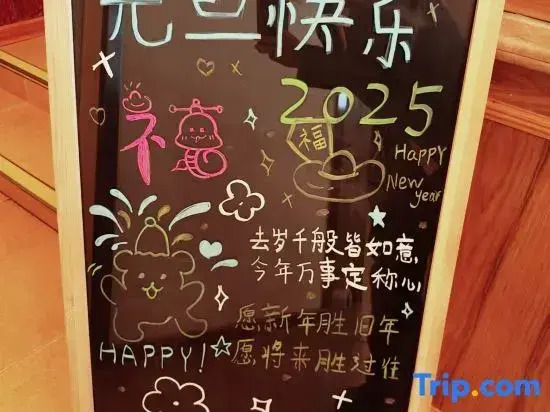 元旦快乐
2025
福
HAPPY
New year
去岁千般皆如意,
今年万事定称心
愿新年胜旧年
愿将来胜过往
HAPPY!
Trip.com